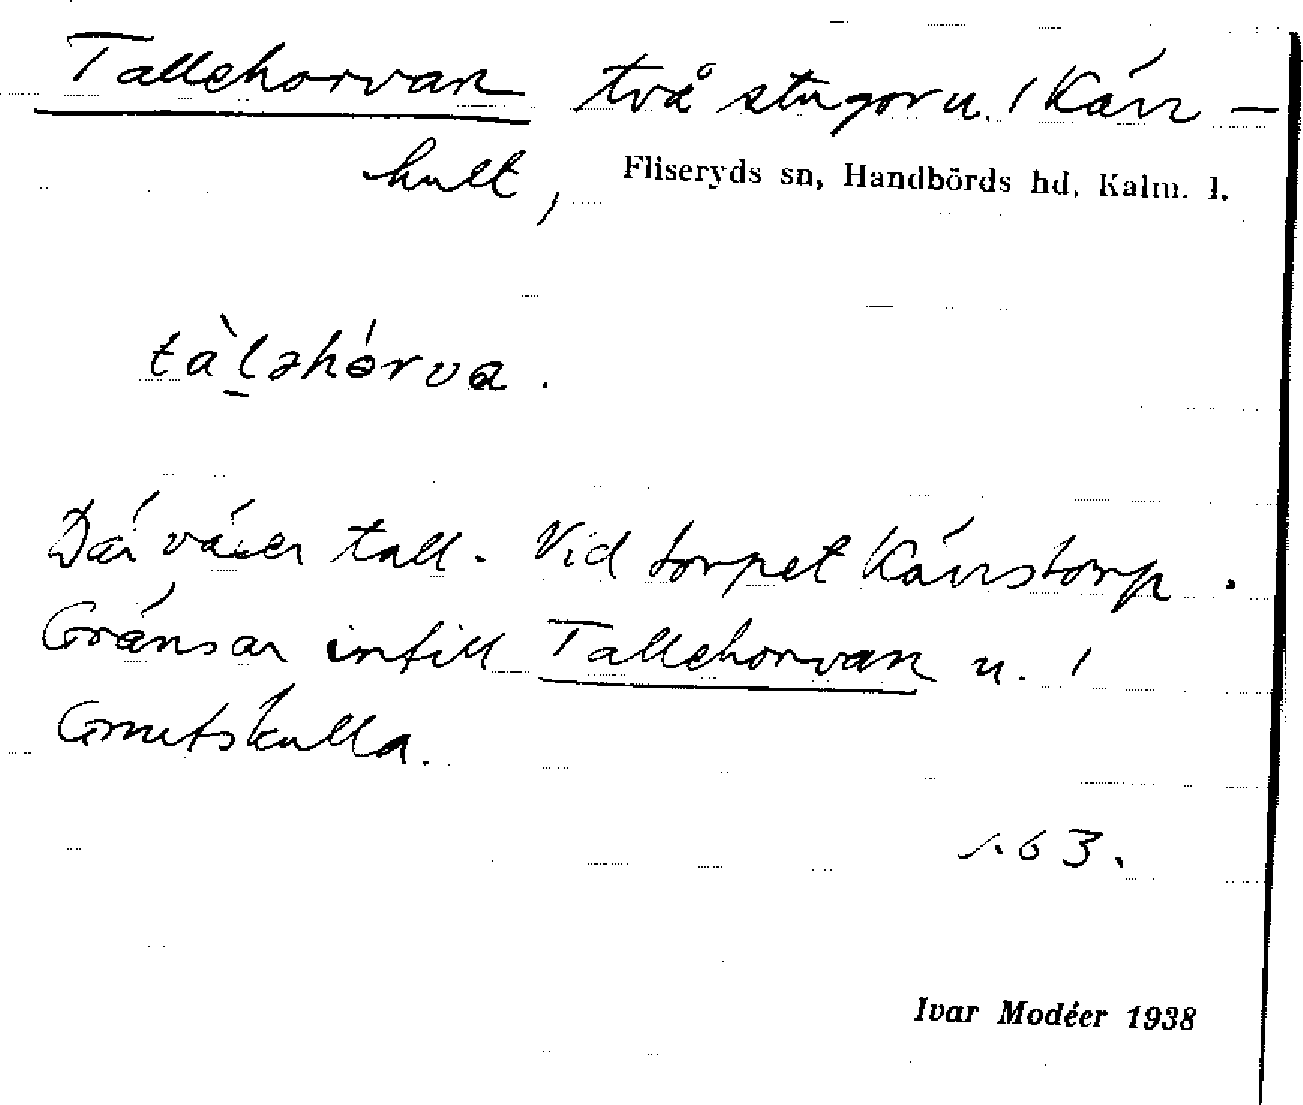 Tallehorvan två stugor u. 1 Kärr-
hult, Fliseryds sn, Handbörds hd, Kalm. l.
tàlǝhórva.
Där växer tall. Vid torpet Kärrstorp.
Gränsar intill Tallehorvan u. 1
Grutskulla.
s. 63.
Ivar Modéer 1938